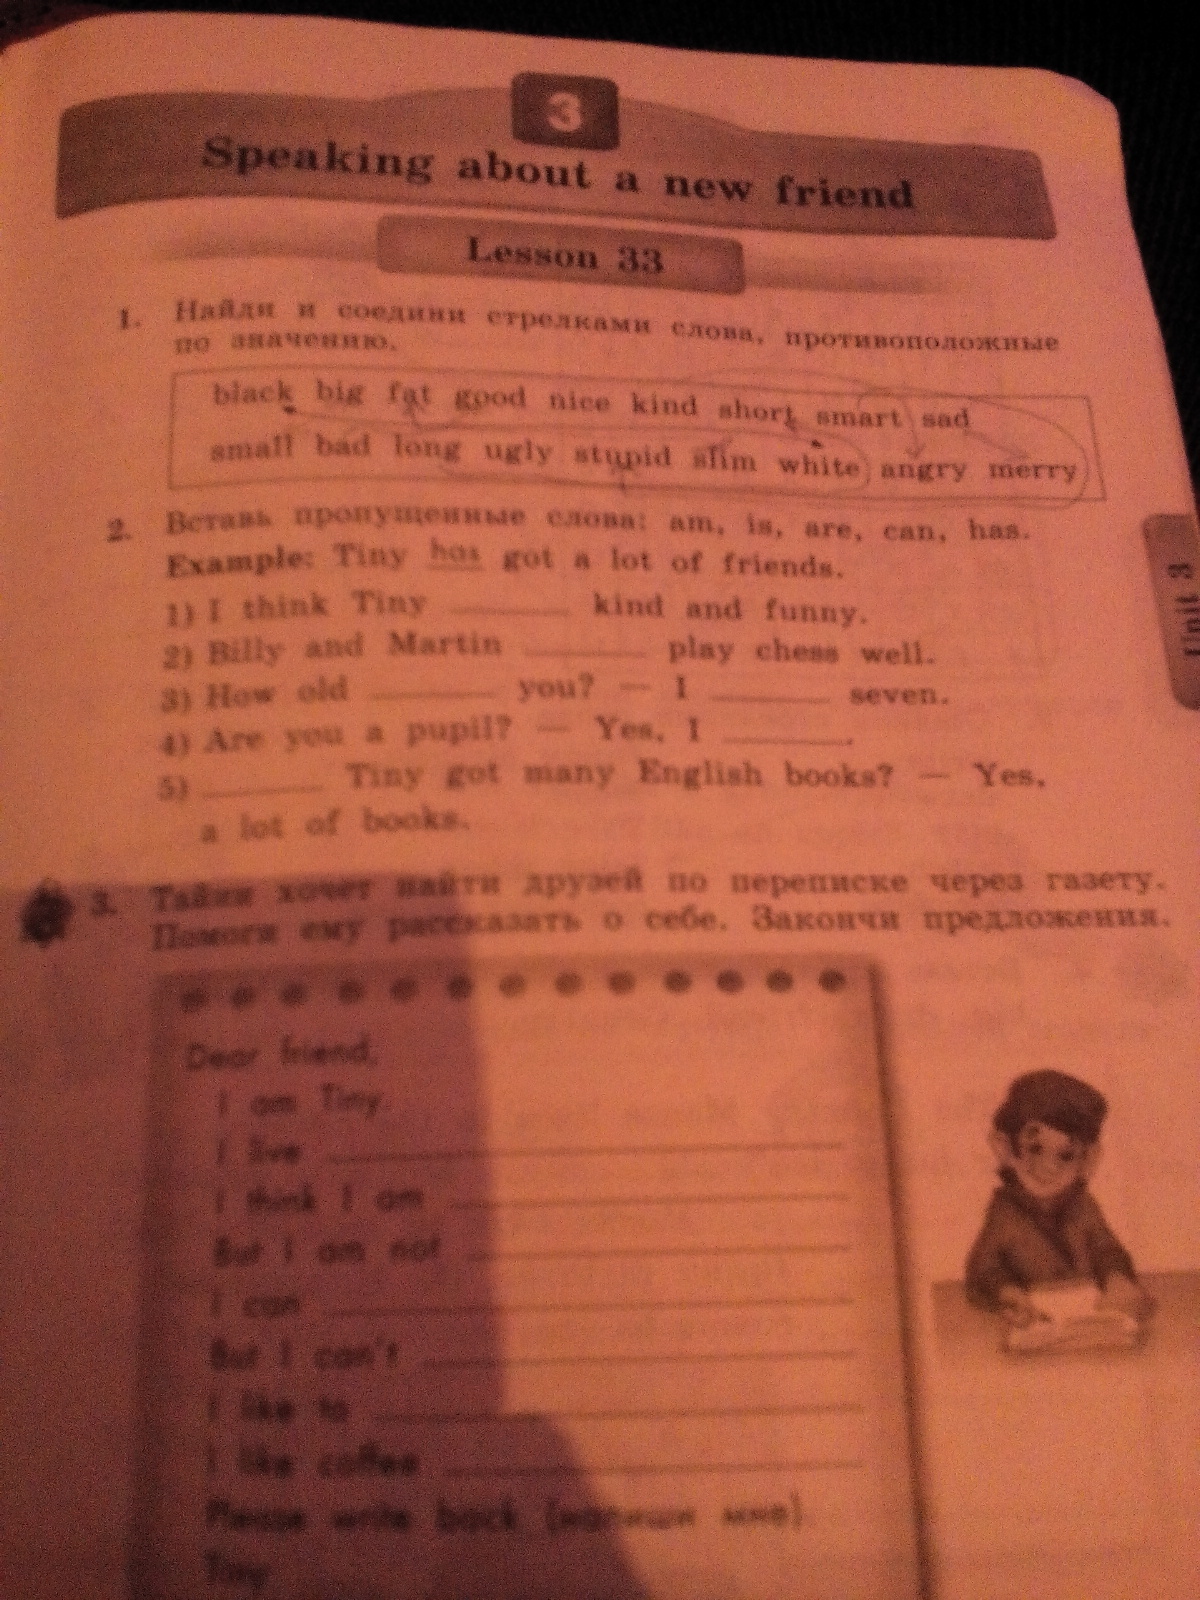 3
Speaking about a new friend
Lesson 33
1. Найди и соедини стрелками слова, противоположные
по значению.
black big fat good nice kind short smart sad
small bad long ugly stupid slim white angry merry
2. Вставь пропущенные слова: am, is, are, can, has.
Example: Tiny has got a lot of friends.
1) I think Tiny ________ kind and funny.
2) Billy and Martin ________ play chess well.
3) How old ________ you? — I ________ seven.
4) Are you a pupil? — Yes, I ________.
5) ________ Tiny got many English books? — Yes,
a lot of books.
Unit 3
3. Тайни хочет найти друзей по переписке через газету.
Помоги ему рассказать о себе. Закончи предложения.
Dear friend,
I am Tiny.
I live ________
I think I am ________
But I am not ________
I can ________
But I can't ________
I like to ________
I like coffee ________
Please write back (напиши мне).
Tiny